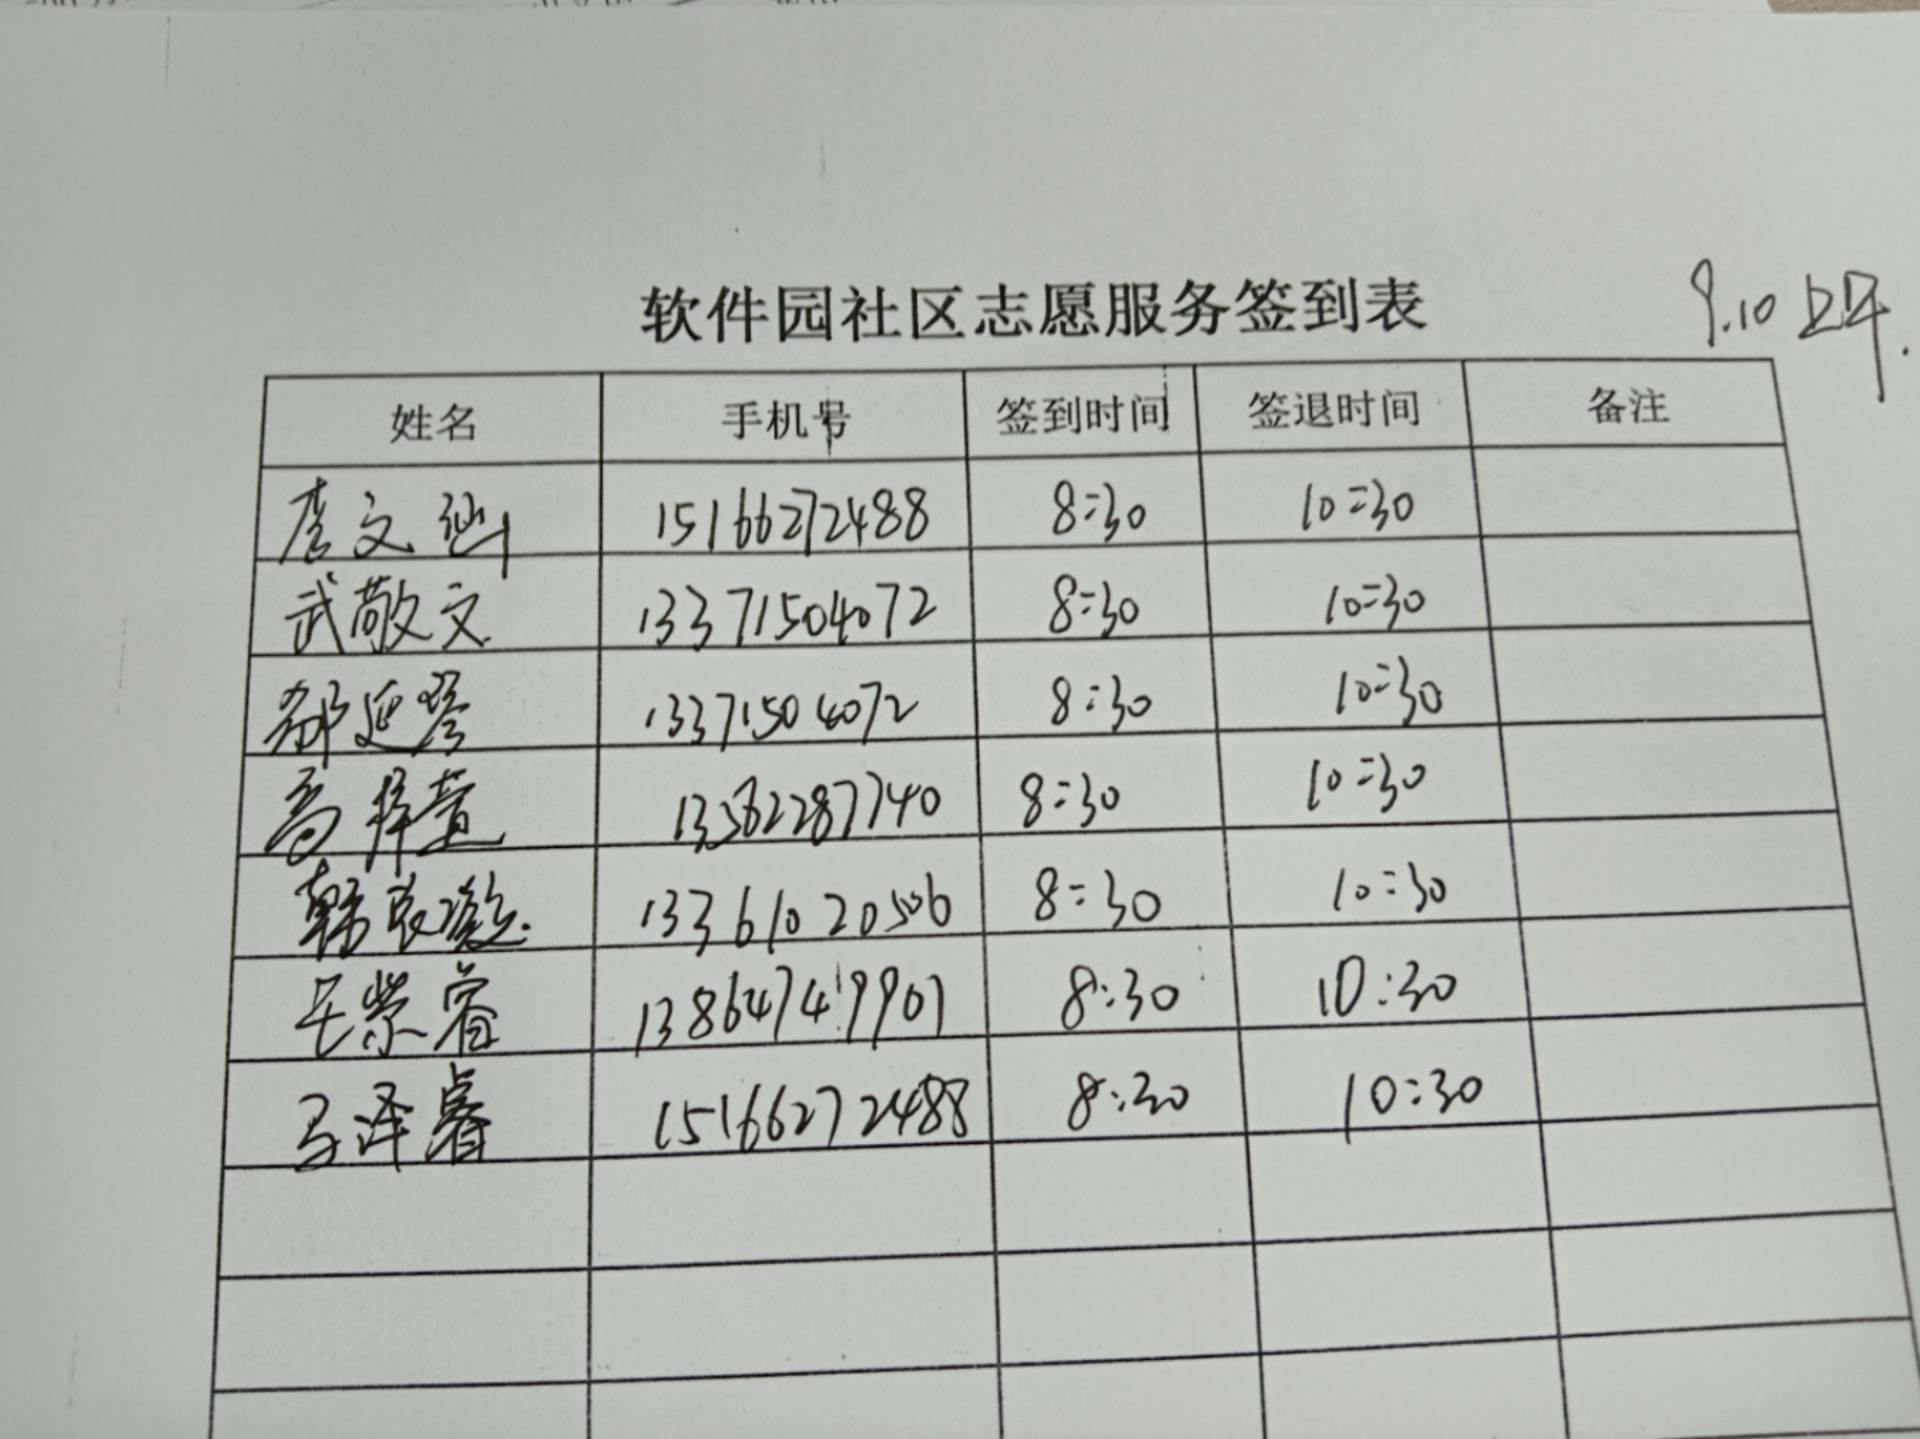 软件园社区志愿服务签到表
9.10 上午.
姓名 手机号 签到时间 签退时间 备注
李文仙 15166272488 8:30 10:30
武敬文 13371504072 8:30 10:30
郝延琴 13371504072 8:30 10:30
高梓萱 13562287740 8:30 10:30
韩 13361020506 8:30 10:30
王紫睿 13864749907 8:30 10:30
马泽睿 15166272488 8:30 10:30